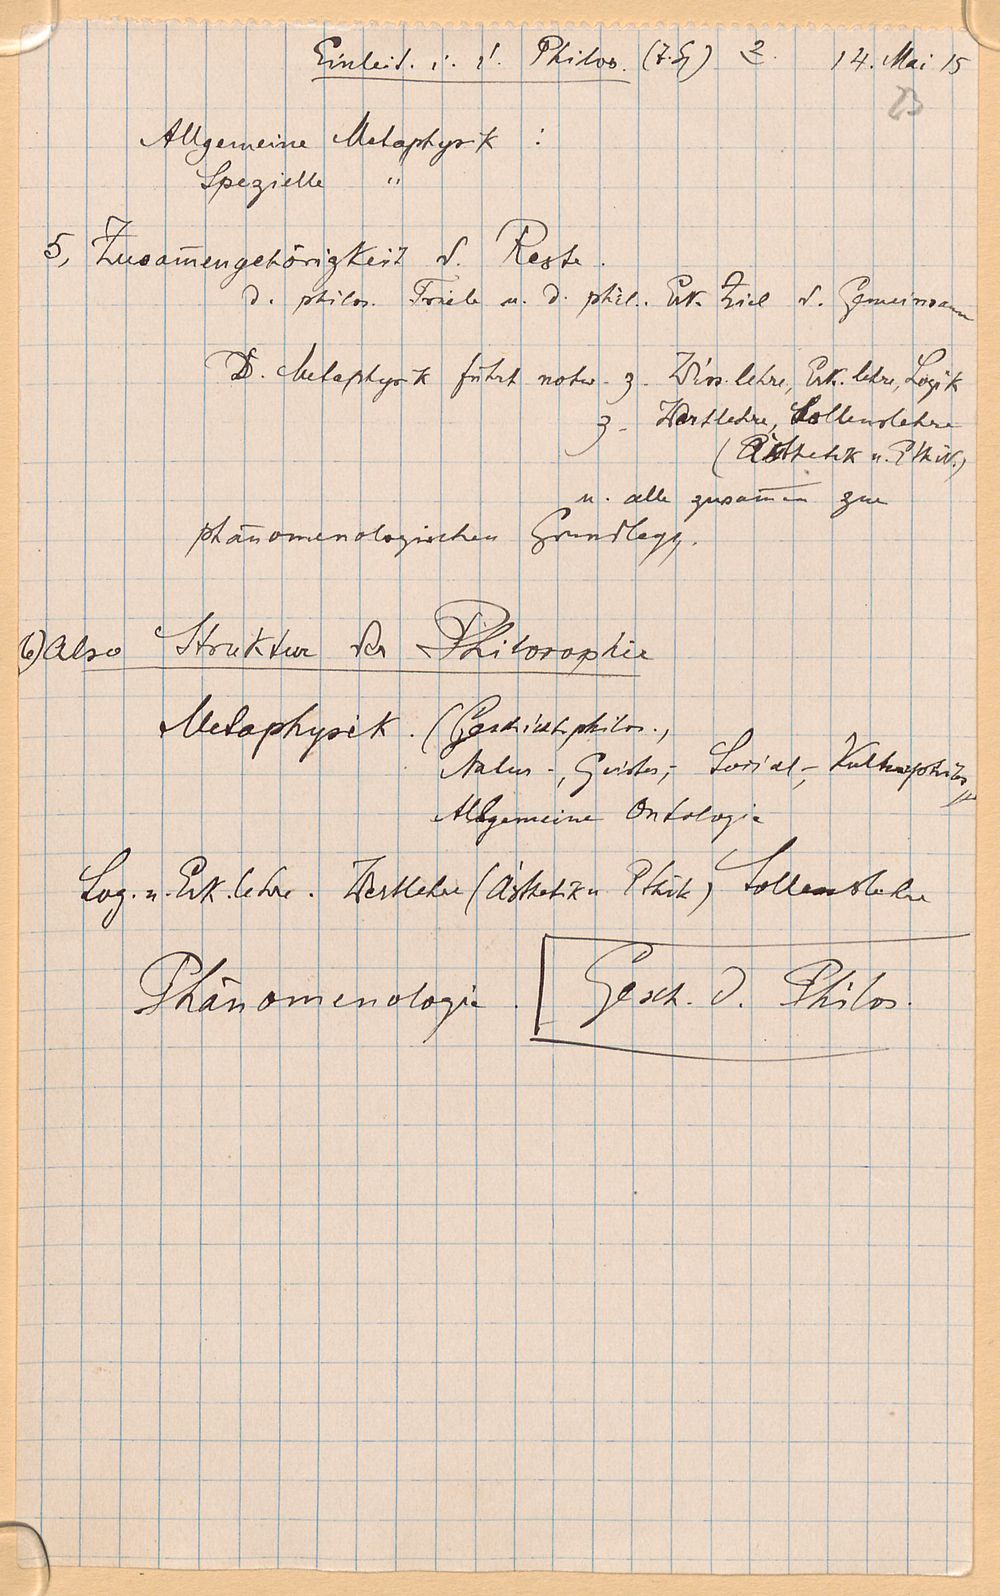 Einleid. i. d. Philos. (F. G) 2. 14. Mai 15
Allgemeine Metaphysik :
Spezielle "
5, Zusam̄engehörigkeit d. Reste.
d. philos. Triebe u. d. phil. Erk. Ziel d. Gemeinsame
D. Metaphysik führt notw. z. Wiss.lehre, Erk.lehre, Logik
z. Wertlehre, Sollenslehre
(Ästhetik u. Ethik)
u. alle zusam̄en zur
phänomenologischen Grundlegg.
6) Also Struktur der Philosophie
Metaphysik. (Geschichtsphilos.,
Natur-, Geistes-, Sozial-, Kulturphilos.
Allgemeine Ontologie
Log. u. Erk.lehre. Wertlehre (Ästhetik u Ethik) Sollenslehre
Phänomenologie. [Gesch. d. Philos.